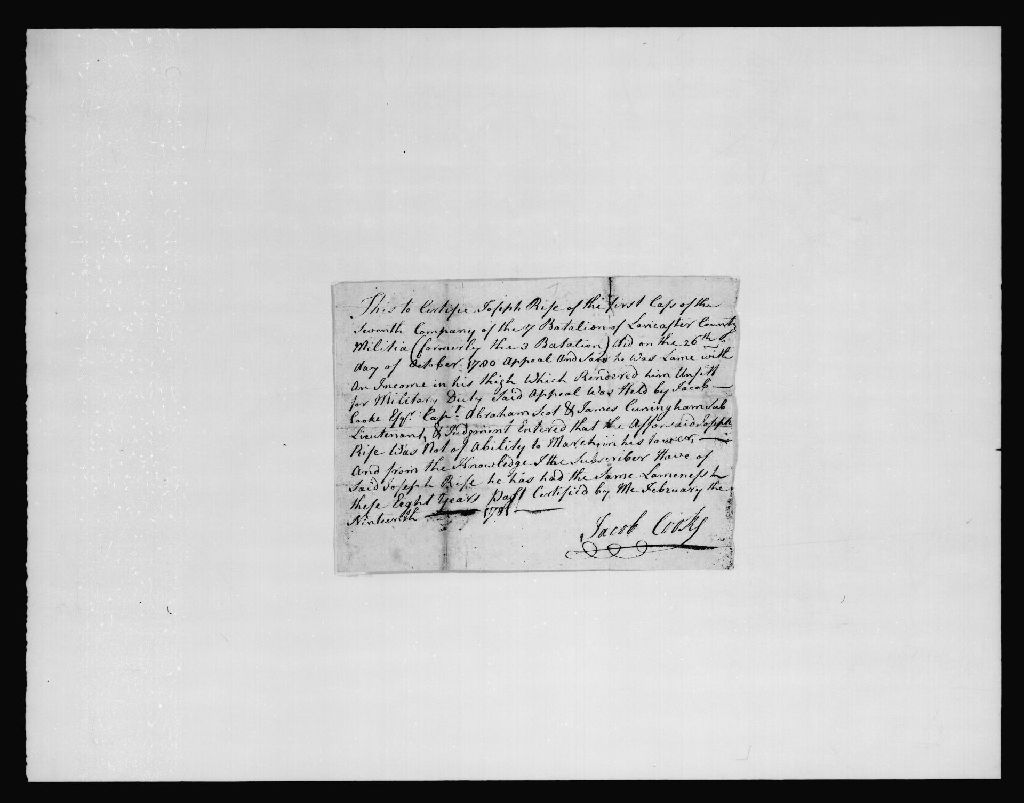 This to Certifie Joseph Rise of the first Class of the
Seventh Company of the 7 Batalion of Lancaster County
Militia (formerly the 3 Batalion) did on the 26th
day of October 1780 Appeal And he Was Lame with
An Income in his thigh Which Rendered him Unfitt
for Military Duty Said Appeal Was Held by Jacob
Cooke Esqr. Capt. Abraham Scot & James Cuningham Sub
Lieutenant, & Judgment Entered that the Afforsaid Joseph
Rise Was Not of Ability to March in his tower,
And from the Knowledge I the Subscriber Have of
Said Joseph Rise he has had the Same Lameness
these Eight Years past Certified by Me February the
Ninteenth 1781
Jacob Cooke